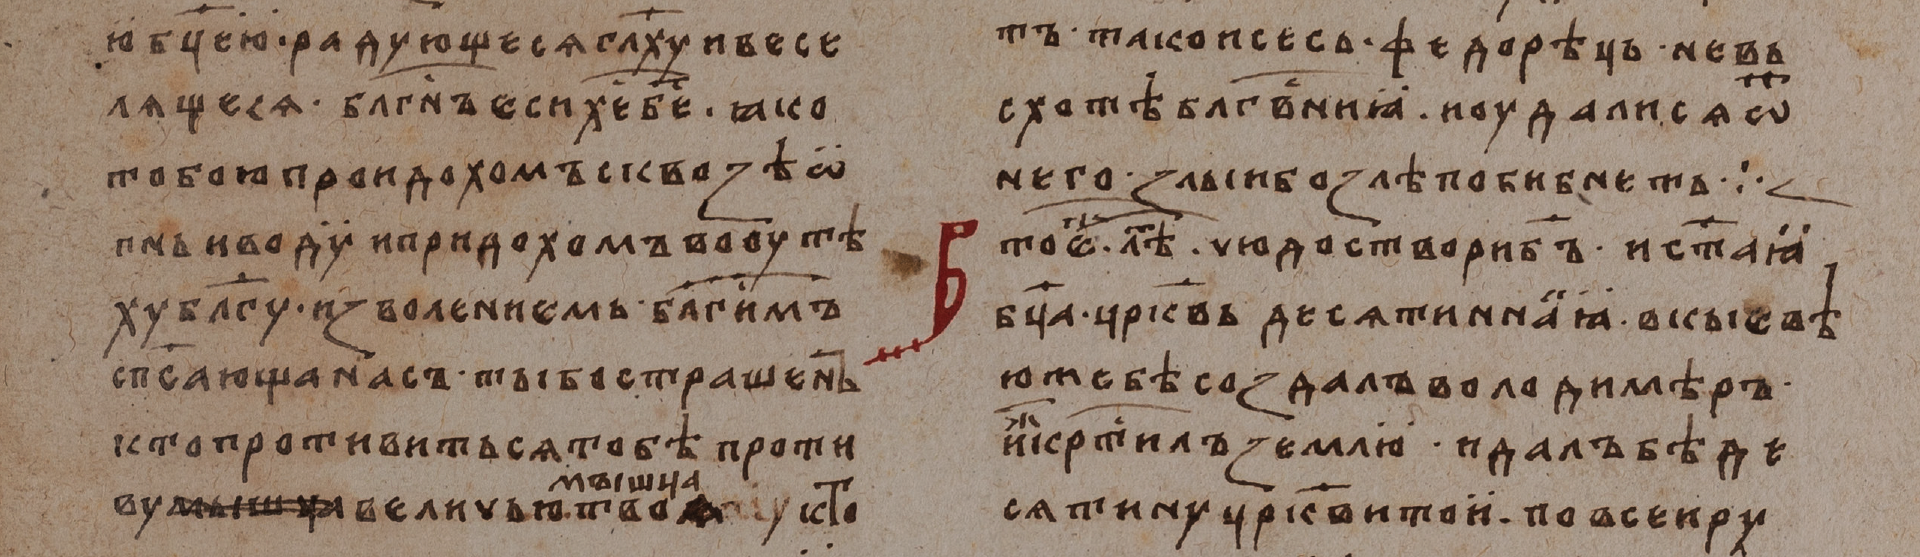 ю бц҃ею · радующесѧ гл҃ху и весе
лѧщесѧ · блг҃нъ еси х҃е б҃е . ꙗко
тобою проидохомъ сквозѣ ѿ
гнь и воду и придохомъ во оутѣ
ху блг҃у · изволениемь · блг҃имъ
сп҃сающа насъ · ты бо страшенъ
кто противитьсѧ тобѣ проти
ву величью твоѧ мышца кто
тъ · тако и се сь · федорѣць · не въ
схотѣ блг҃вниꙗ . и оудалисѧ ѿ
него · злыи бо злѣ погибнеть · :·
то҃е ж · лѣ҃т . чюдо створи б҃ъ · и ст҃аꙗ
бц҃а · цр҃квь десѧтиннаꙗ . в кыевѣ
юже бѣ создалъ володимѣръ ·
иже кр҃стилъ землю · и далъ бѣ де
сѧтину цр҃кви тои . по всеи ру